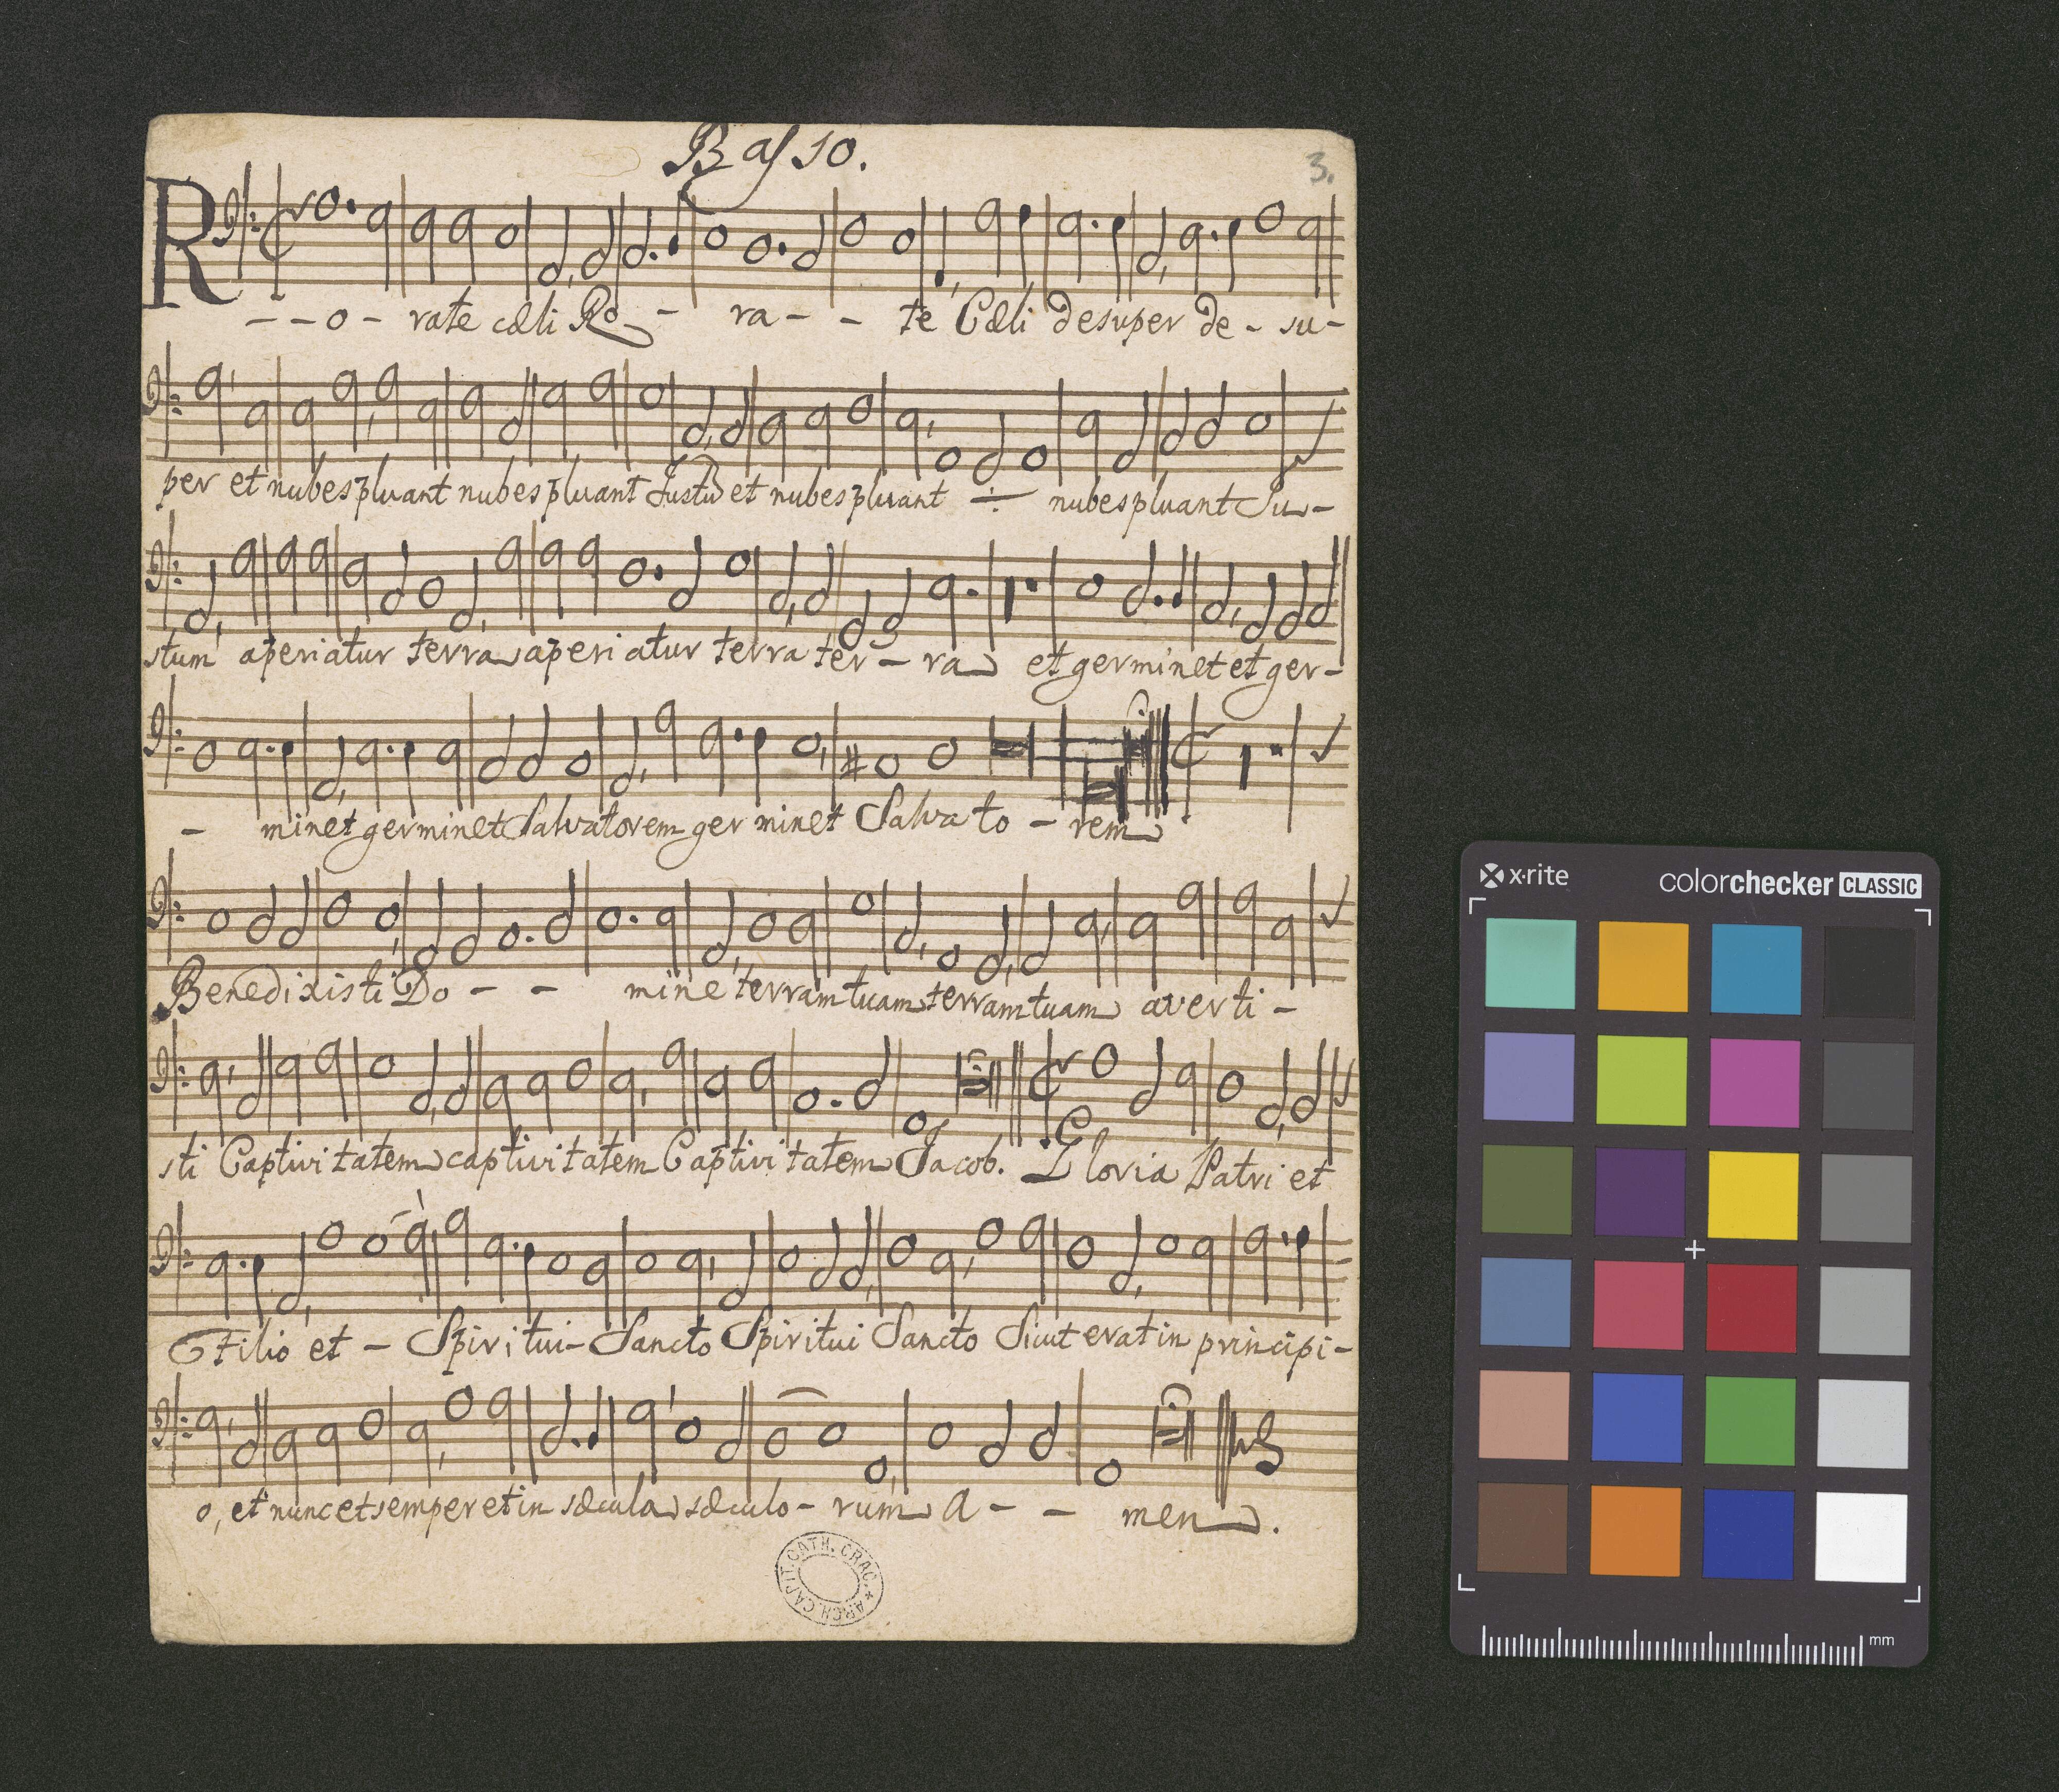 Basso.
3.
R - - o - rate cæli Ro - - ra - - te Cæli desuper de - su -
per et nubes pluant nubes pluant Justũ et nubes pluant ÷ nubes pluant Ju -
stum aperiatur terra aperi atur terra ter - ra et germinet et ger -
- minet germinet Salvatorem ger minet Salva to - rem
Benedixisti Do - - mine terram tuam terram tuam averti -
sti Captivitatem captivitatem Captivi tatem Jacob. Gloria Patri et
Filio et - Spiri tui - Sancto Spiritui Sancto Sicut erat in principi -
o, et nunc et semper et in sæcula sæculo - rum A - - men.
ARCH. CAPIT. CATH. CRAC.
x-rite
colorchecker CLASSIC
mm